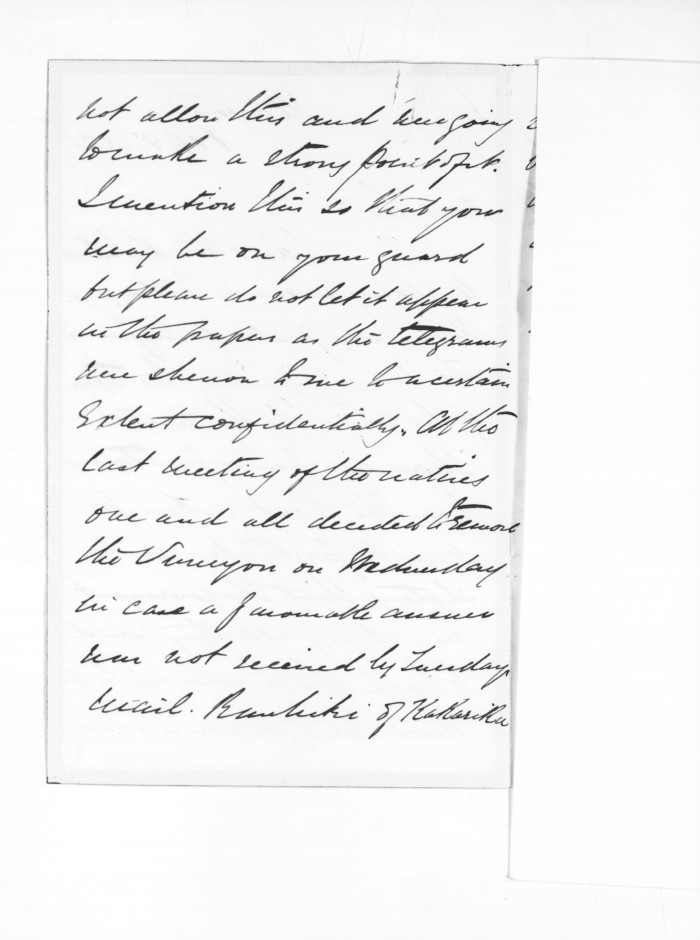 not allow this and are going
to make a strong point of it.
I mention this so that you
may be on your guard
but please do not let it appear
in the papers as the telegrams
were shewn to me to a certain
extent confidentially. At the
last meeting of the natives
one and all decided to remove
the Surveyor on Wednesday
in case a favourable answer
was not received by Tuesdays
mail. of Kakariki